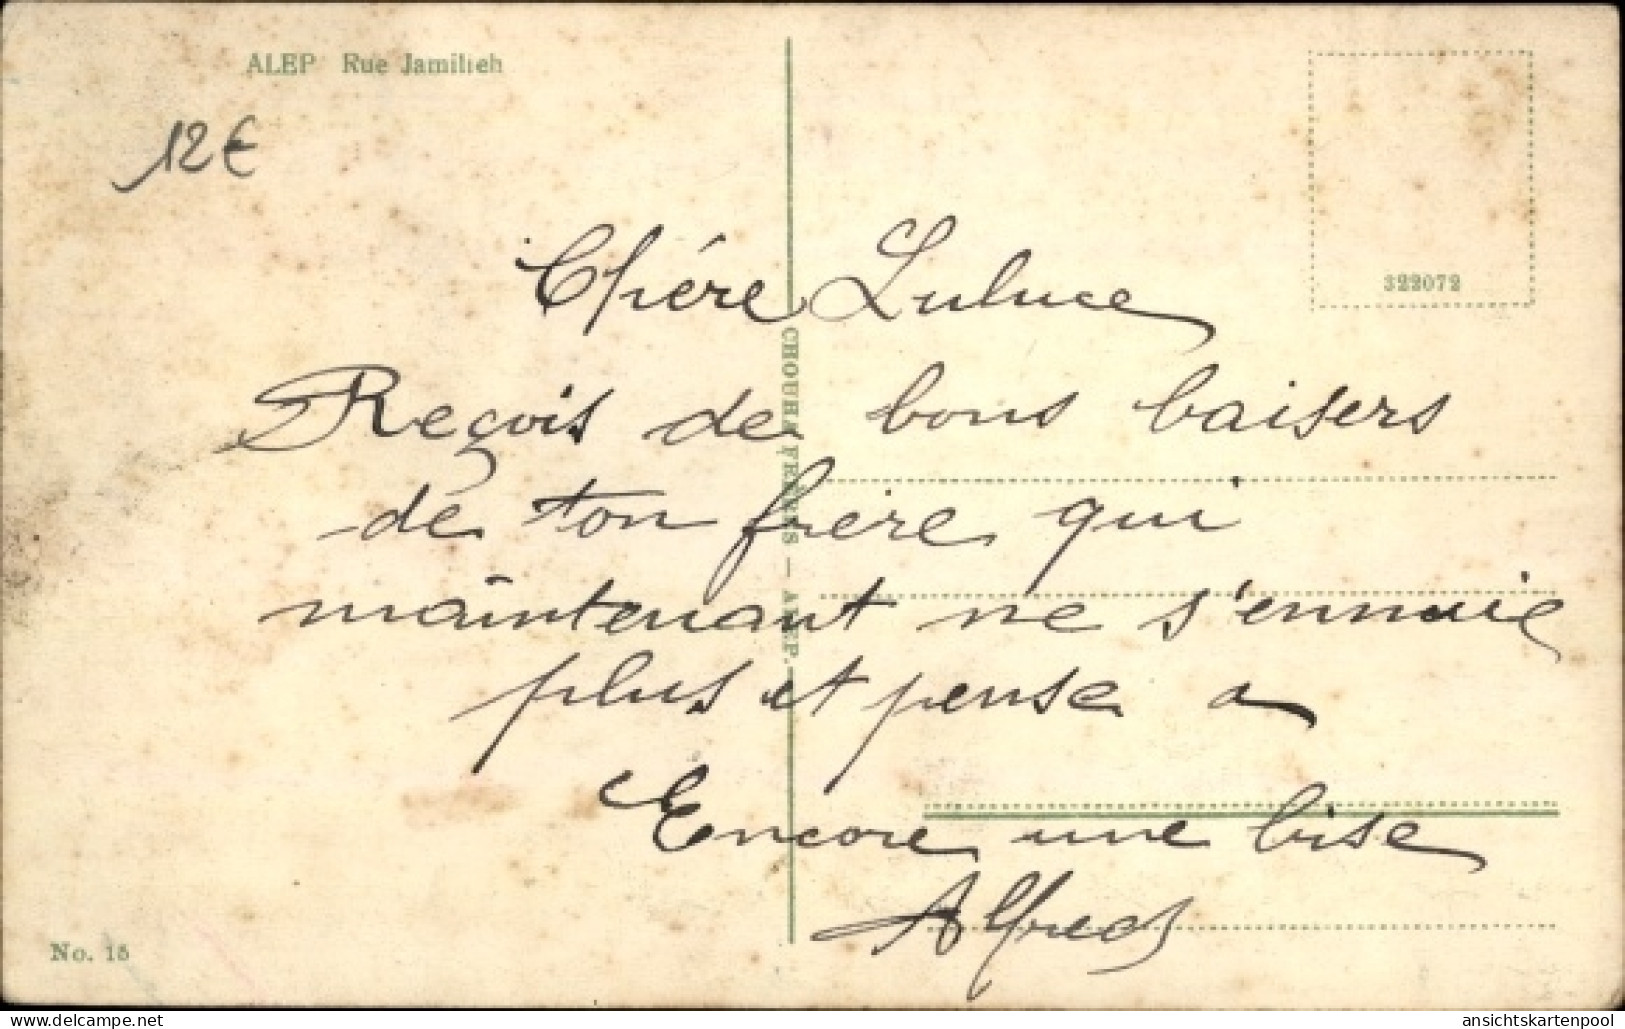 ALEP Rue Jamilieh
12€
322072
Chére Luluce
Reçois de bons baisers
de ton frere qui
maintenant ne s'ennuie
plus et pense a
Encore une bise
Alfred
CHOUHA FRERES — ALEP.
No. 15
delcampe.net
ansichtskartenpool